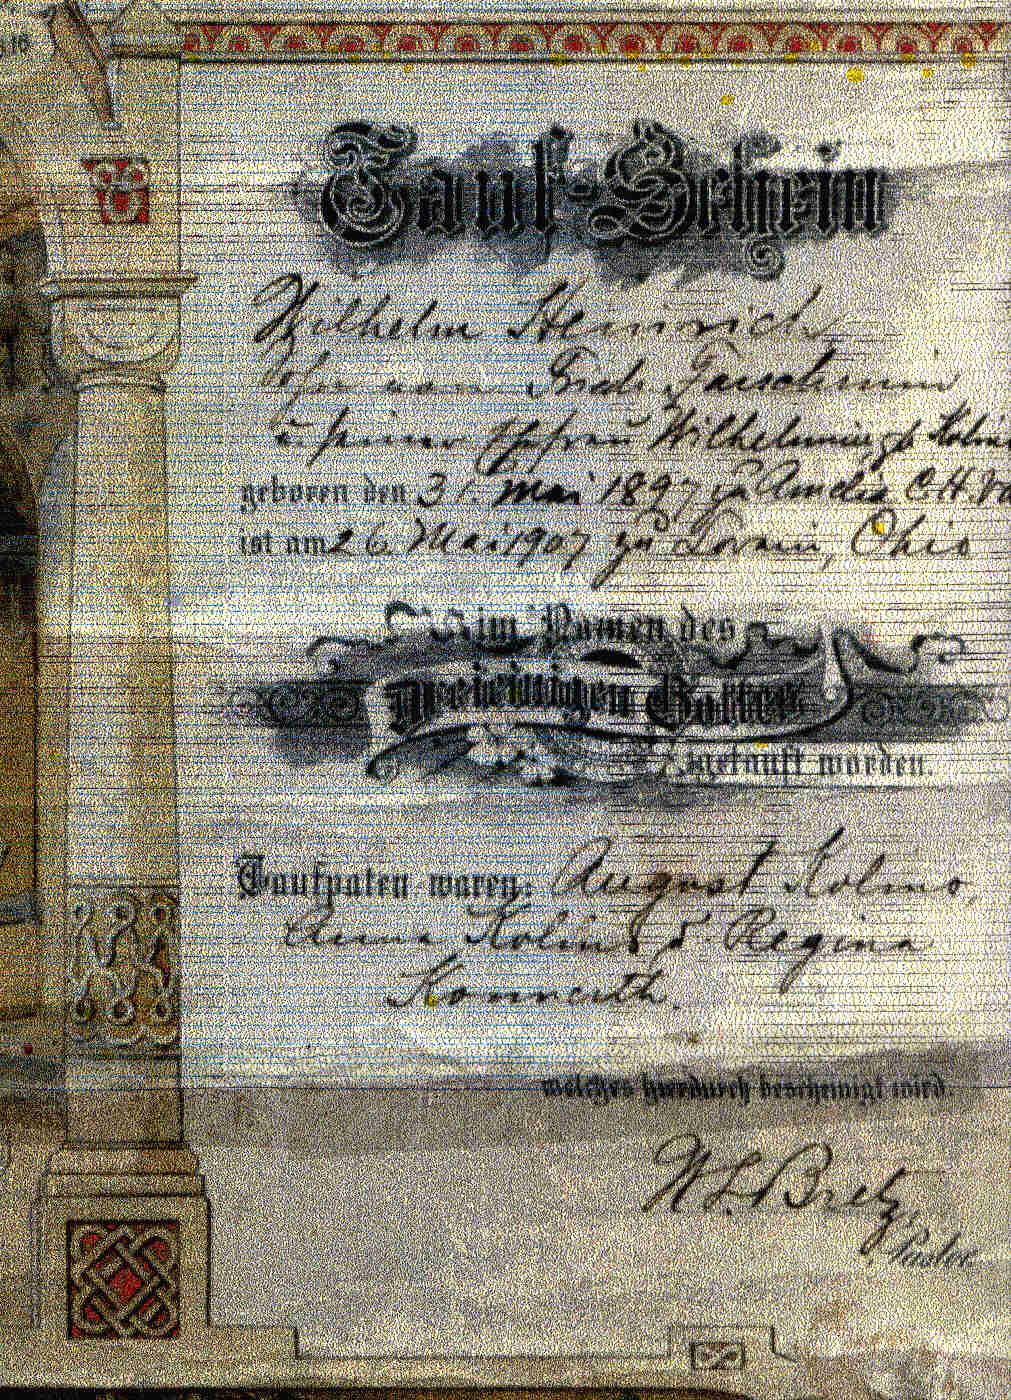 Tauf-Schein
Wilhelm Heinrich
von Fried.
u. seiner Ehefrau Wilhelmine
geboren den 31. Mai 1897 zu Amelia C.H. Va
ist am 26. Mai 1907 zu Lorain, Ohio
im Namen des
dreieinigen Gottes
getauft worden.
Taufpaten waren: August Kolino,
Anna Kolino & Regina
Konnerth.
welches hierdurch bescheinigt wird.
W. L. Bretz,
Pastor.